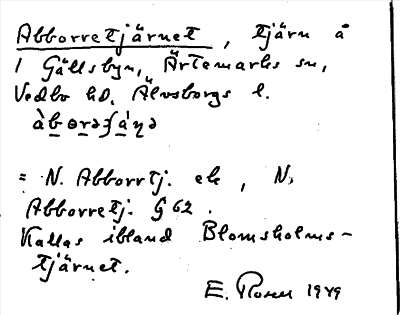 Abborretjärnet, tjärn å
1 Gällsbyn, Ärtemarks sn,
Vedbo hd. Älvsborgs l.
àbɵrəʃáŋə
= N. Abborrtj. ek, N.
Abborretj. G 62.
Kallas ibland Blomsholms-
tjärnet.
E. Rosell 1949